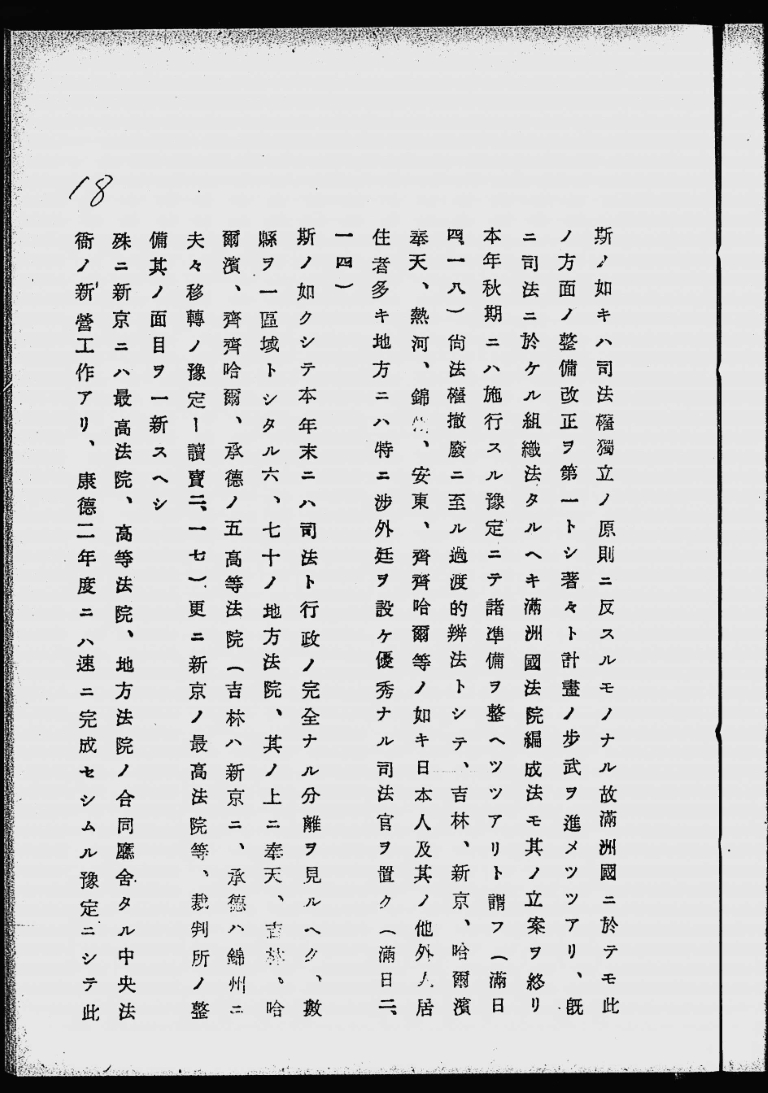 斯ノ如キハ司法權獨立ノ原則ニ反スルモノナル故滿洲國ニ於テモ此
ノ方面ノ整備改正ヲ第一トシ著々ト計畫ノ步武ヲ進メツツアリ、旣
ニ司法ニ於ケル組織法タルヘキ滿洲國法院編成法モ其ノ立案ヲ終リ
本年秋期ニハ施行スル豫定ニテ諸準備ヲ整ヘツツアリト謂フ(滿日
四、一八)尙法權撤廢ニ至ル過渡的辨法トシテ、吉林、新京、哈爾濱
奉天、熱河、錦州、安東、齊齊哈爾等ノ如キ日本人及其ノ他外人居
住者多キ地方ニハ特ニ涉外廷ヲ設ケ優秀ナル司法官ヲ置ク(滿日二、
一四)
斯ノ如クシテ本年末ニハ司法ト行政ノ完全ナル分離ヲ見ルヘク、數
縣ヲ一區域トシタル六、七十ノ地方法院、其ノ上ニ奉天、吉林、哈
爾濱、齊齊哈爾、承德ノ五高等法院(吉林ハ新京ニ、承德ハ錦州ニ
夫々移轉ノ豫定ー讀賣二、一七)、更ニ新京ノ最高法院等、裁判所ノ整
備其ノ面目ヲ一新スヘシ
殊ニ新京ニハ最高法院、高等法院、地方法院ノ合同廳舍タル中央法
衙ノ新營工作アリ、康德二年度ニハ速ニ完成セシムル豫定ニシテ此
18